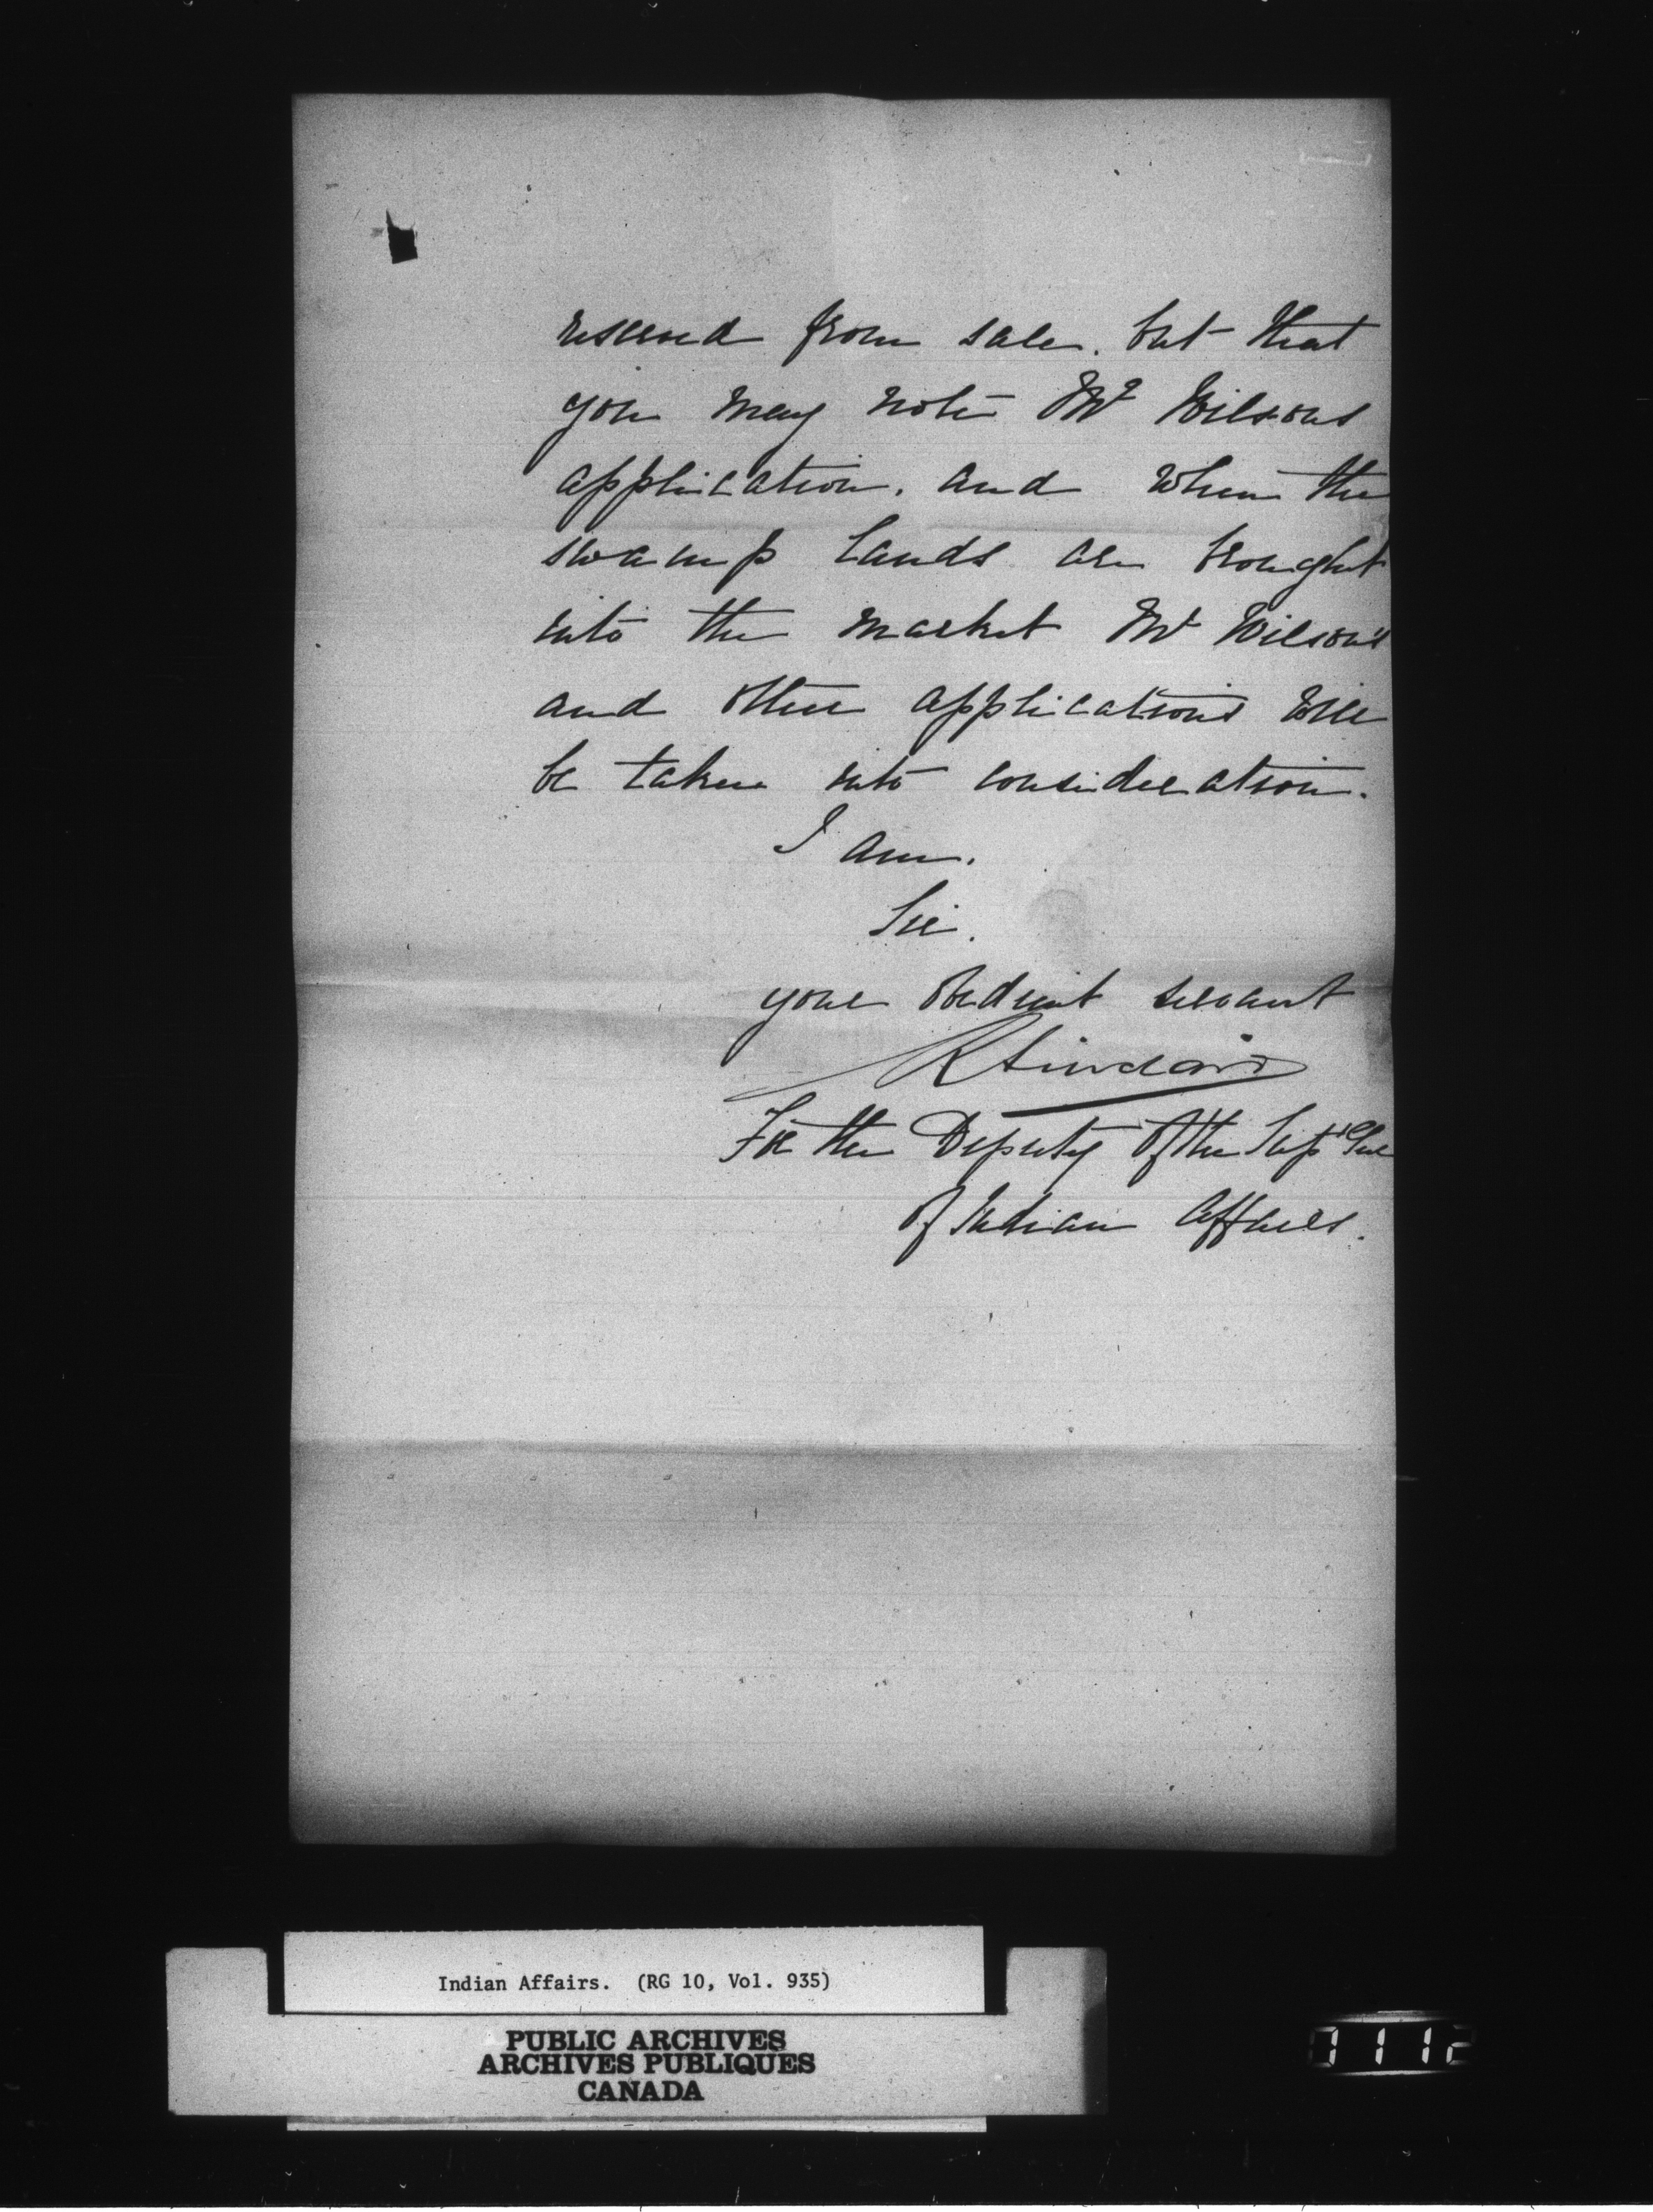 reserved from sale. but that
you may note Mr Wilsons
application. and when the
swamp lands are brought
into the market Mr Wilson's
and other applications will
be taken into consideration.
I am.
Sir.
your obedient servant
R Sinclair
For the Deputy of the Supt Genl
of Indian Affairs.
Indian Affairs. (RG 10, Vol. 935)
PUBLIC ARCHIVES
ARCHIVES PUBLIQUES
CANADA
1112